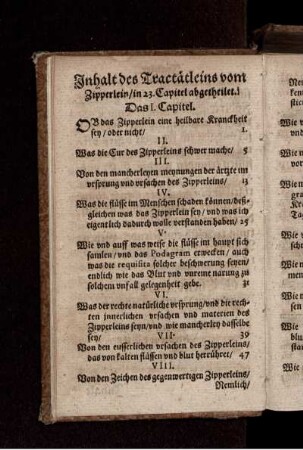 Inhalt des Tractätleins vom
Zipperlein/in 23. Capitel abgetheilet.
Das I. Capitel.
OB das Zipperlein eine heilbare Kranckheit
sey/oder nicht/ 1.
II.
Was die Cur des Zipperleins schwer mache/ 5
III.
Von den mancherleyen meynungen der ärtzte im
vrsprung vnd vrsachen des Zipperleins/ 13
IV.
Was die flüsse im Menschen schaden können/deß-
gleichen was das Zipperlein sey/vnd was ich
eigentlich dadurch wolle verstanden haben/ 25
V.
Wie vnd auff was weise die flüsse im haupt sich
samlen/vnd das Podagram erwecken/auch
was die requisita solcher beschwerung seyen/
endlich wie das Blut vnd vnreine narung zu
solchem vnfall gelegenheit gebe. 31
VI.
Was der rechte natürliche vrsprung/vnd die rech-
ten innerlichen vrsachen vnd materien des
Zipperleins seyn/vnd wie mancherley dasselbe
sey/ VII. 39
Von den eusserlichen vrsachen des Zipperleins/
das von kalten flüssen vnd blut herrühret/ 47
VIII.
Von den Zeichen des gegenwertigen Zipperleins/
Nemlich/